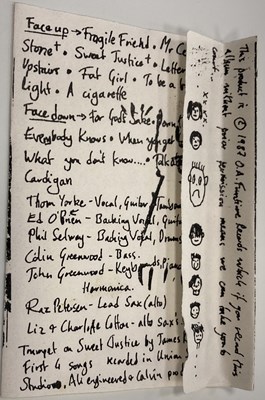 Face up → Fragile Friend. Mr Ce
Stone+ • Sweet Justice+ • Letter
Upstairs • Fat Girl • To be a b
Light. A cigarette
Face down → For God's Sake • Burn
Everybody Knows • When you get
What you don't know.... • Talk
Cardigan
Thom Yorke - Vocal, Guitar, Tambour
Ed O'Brien - Backing Vocal, Guita
Phil Selway - Backing Vocal, Drums
Colin Greenwood - Bass.
John Greenwood - Keyboards, Piano
Harmonica.
Raz Petersen - Lead Sax (alto)
Liz & Charlotte Cotton - alto Sax s
Trumpet on Sweet Justice by James
First 4 songs recorded in Union
Studios, Ali engineered & Calvin pro
This product is © 1987 O.A. Records which if you record this
album without prior permission means we can take you to
court.